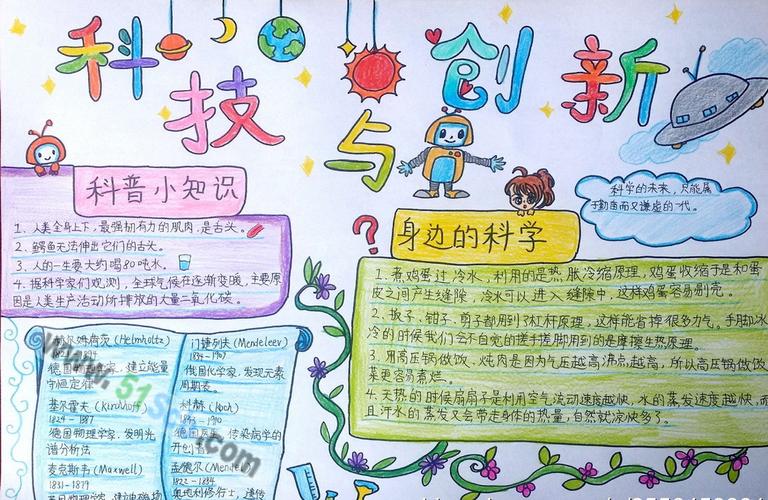 科技与创新
科普小知识
1、人类全身上下，最强韧有力的肌肉，是舌头。
2、鳄鱼无法伸出它们的舌头。
3、人的一生要大约喝80吨水。
4、据科学家们观测，全球气候在逐渐变暖，主要原
因是人类生产活动所排放的大量二氧化碳。
科学的未来，只能属
于勤奋而又谦虚的一代。
身边的科学
1、煮鸡蛋过冷水，利用的是热胀冷缩原理，鸡蛋收缩于是和蛋
皮之间产生缝隙，冷水可以进入缝隙中，这样鸡蛋容易剥壳。
2、扳子、钳子、剪子都用到了杠杆原理，这样能省掉很多力气。手脚冰
冷的时候我们会不自觉的搓手搓脚用到的是摩擦生热原理。
3、用高压锅做饭、炖肉是因为气压越高沸点越高，所以高压锅做饭
菜更容易煮烂。
4、天热的时候扇扇子是利用空气流动速度越快，水的蒸发速度越快，而
且汗水的蒸发又会带走身体的热量，自然就凉快多了。
(Helmholtz)
德国
家，建立能量
守恒定律
基尔霍夫(Kirchhoff)
1824-1887
德国物理学家，发明光
谱分析法
麦克斯韦(Maxwell)
1831-1879
门捷列夫(Mendeleev)
1834-1907
俄国化学家，发现元素
周期表。
科赫(Koch)
1843-1910
德国医生，传染病学的
开创者
孟德尔(Mendel)
1822-1884
奥地利修行士，遗传